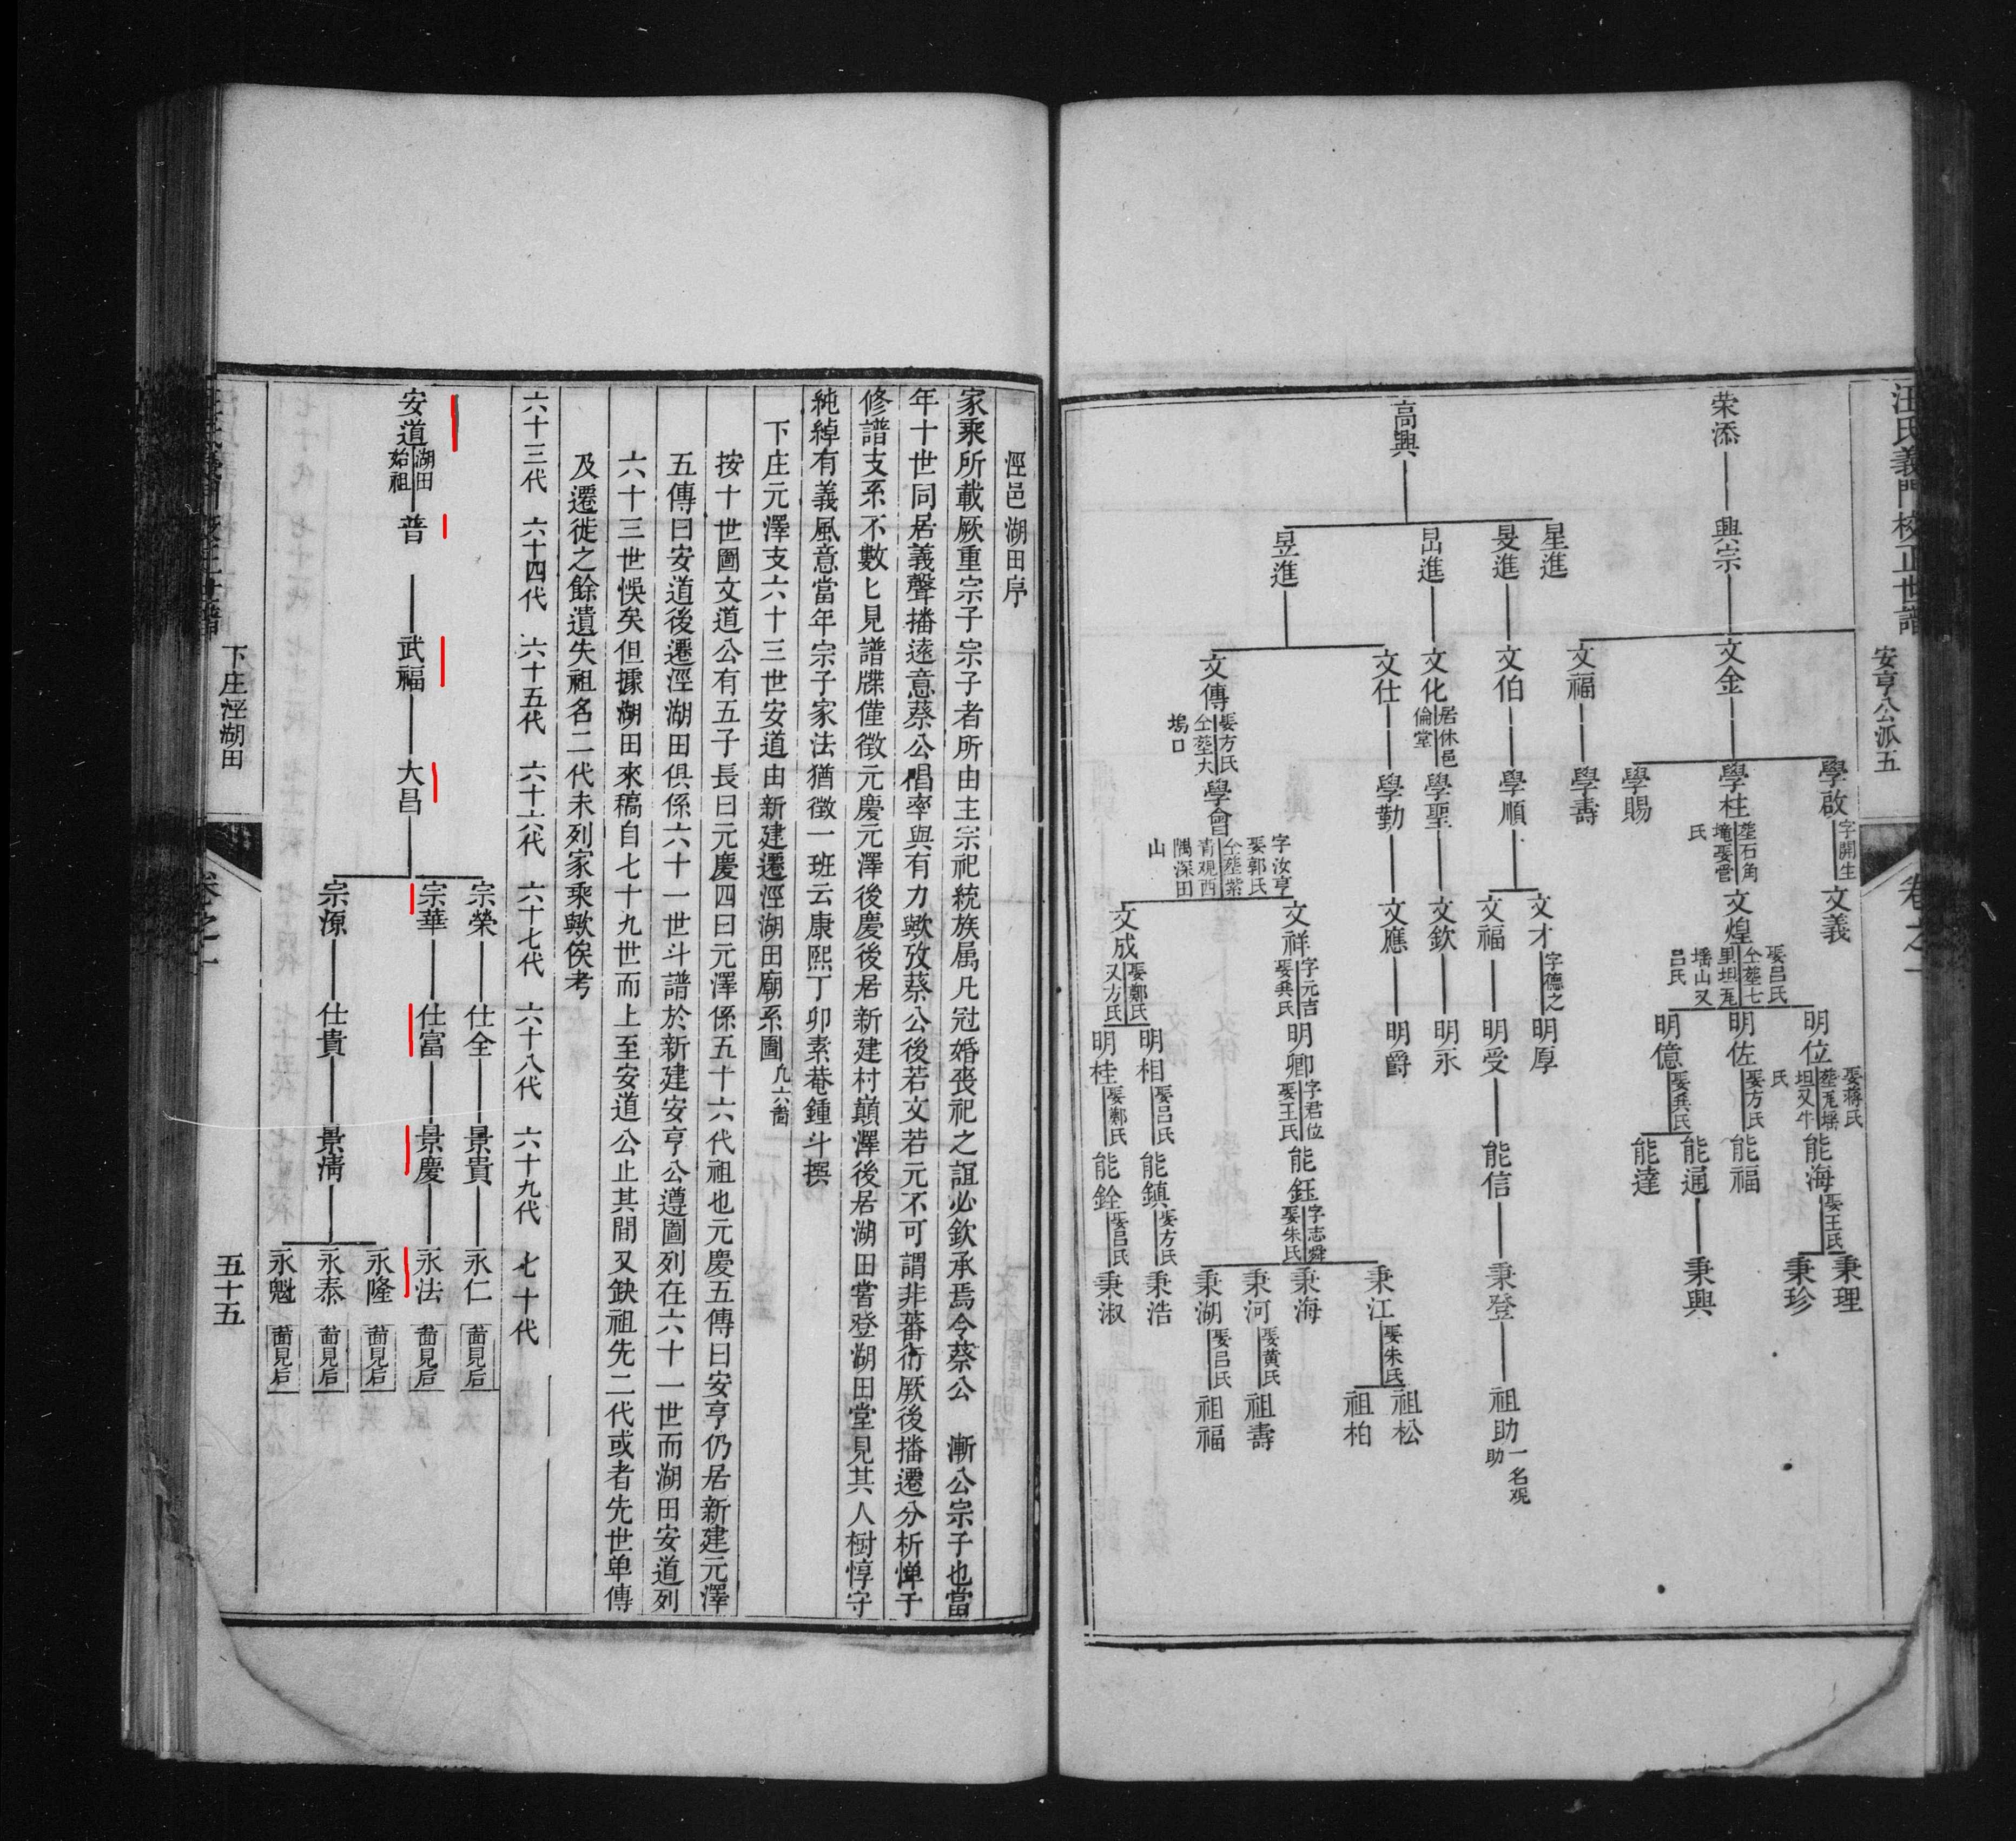 汪氏義門校正世譜
安亨公派五
卷之一
荣添
興宗
文金
文福
學啟
字開生
學柱
塟石角
塊娶管
氏
學賜
學壽
文義
文煌
娶呂氏
仝塟七
里坦瓦
墦山又
呂氏
明位
娶蒋氏
塟瓦瑶
坦又牛
氏
明佐
娶方氏
明億
娶兵氏
能海
娶王氏
能福
能通
能達
秉理
秉珍
秉興
高興
星進
旻進
昌進
昱進
文伯
文化
居休邑
倫堂
文仕
文傳
娶方氏
仝塟大
塢口
學順
學聖
學勤
學會
字汝亨
娶郭氏
仝塟紫
青观西
隅深田
山
文才
字德之
文福
文欽
文應
文祥
字元吉
娶兵氏
文成
娶鄭氏
又方氏
明厚
明受
明永
明爵
明卿
字君位
娶王氏
明相
娶呂氏
明桂
娶鄭氏
能信
能鈺
字志舜
娶朱氏
能鎮
娶方氏
能銓
娶呂氏
秉登
秉江
娶朱氏
秉海
秉河
娶黄氏
秉湖
娶呂氏
秉浩
秉淑
祖助
一名观
助
祖松
祖柏
祖壽
祖福
涇邑湖田序
家乘所載厥重宗子宗子者所由主宗祀統族属凡冠婚喪祀之誼必欽承焉今蔡公　漸公宗子也當
年十世同居義聲播逺意蔡公倡率與有力歟攷蔡公後若文若元不可謂非蕃衍厥後播遷分析惮于
修譜支系不數匕見譜牒僅徴元慶元澤後慶後居新建村巔澤後居湖田嘗登湖田堂見其人樹惇守
純綽有義風意當年宗子家法猶徴一班云康熙丁卯素菴鍾斗撰
下庄元澤支六十三世安道由新建遷涇湖田廟系圖
九六啚
按十世圖文道公有五子長曰元慶四曰元澤係五十六代祖也元慶五傳曰安亨仍居新建元澤
五傳曰安道後遷涇湖田俱係六十一世斗譜於新建安亨公遵圖列在六十一世而湖田安道列
六十三世悞矣但據湖田來稿自七十九世而上至安道公止其間又缺祖先二代或者先世单傳
及遷徙之餘遺失祖名二代未列家乘歟俟考
六十三代　六十四代　六十五代　六十六代　六十七代　六十八代　六十九代　七十代
安道
湖田
始祖
普
武福
大昌
宗榮
仕全
景貴
永仁
啚見后
宗華
仕富
景慶
永法
啚見后
宗源
仕貴
景清
永隆
啚見后
永泰
啚見后
永魁
啚見后
下庄涇湖田
卷之一
五十五